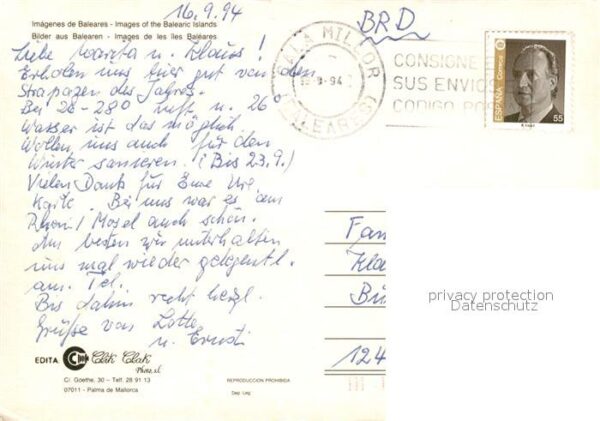 16.9.94
Imágenes de Baleares - Images of the Balearic Islands
Bilder aus Balearen - Images de les îles Baleares
Liebe u. Klaus!
Erholen uns hier gut von den
Strapazen des Jahres.
Bei 26-28° Luft u. 26°
Wasser ist das möglich
Wollen uns auch für den
Winter sanieren. (Bis 23.9.)
Vielen Dank für Eure
Karte. Bei uns war es am
Rhein / Mosel auch schön.
Am besten wir unterhalten
uns mal wieder gelegentl.
am Tel.
Bis dahin recht herzl.
Grüße von Lotte
u. Ernst
BRD
CALA MILLOR
9-94
(BALEARES)
CONSIGNE E
SUS ENVIO
CODIGO POST
ESPAÑA Correos
55
Fam
Kla
Bü
124
privacy protection
Datenschutz
EDITA Clik Clak
Photo, s.l.
C/. Goethe, 30 - Telf. 28 91 13
07011 - Palma de Mallorca
REPRODUCCION PROHIBIDA
Dep. Leg.